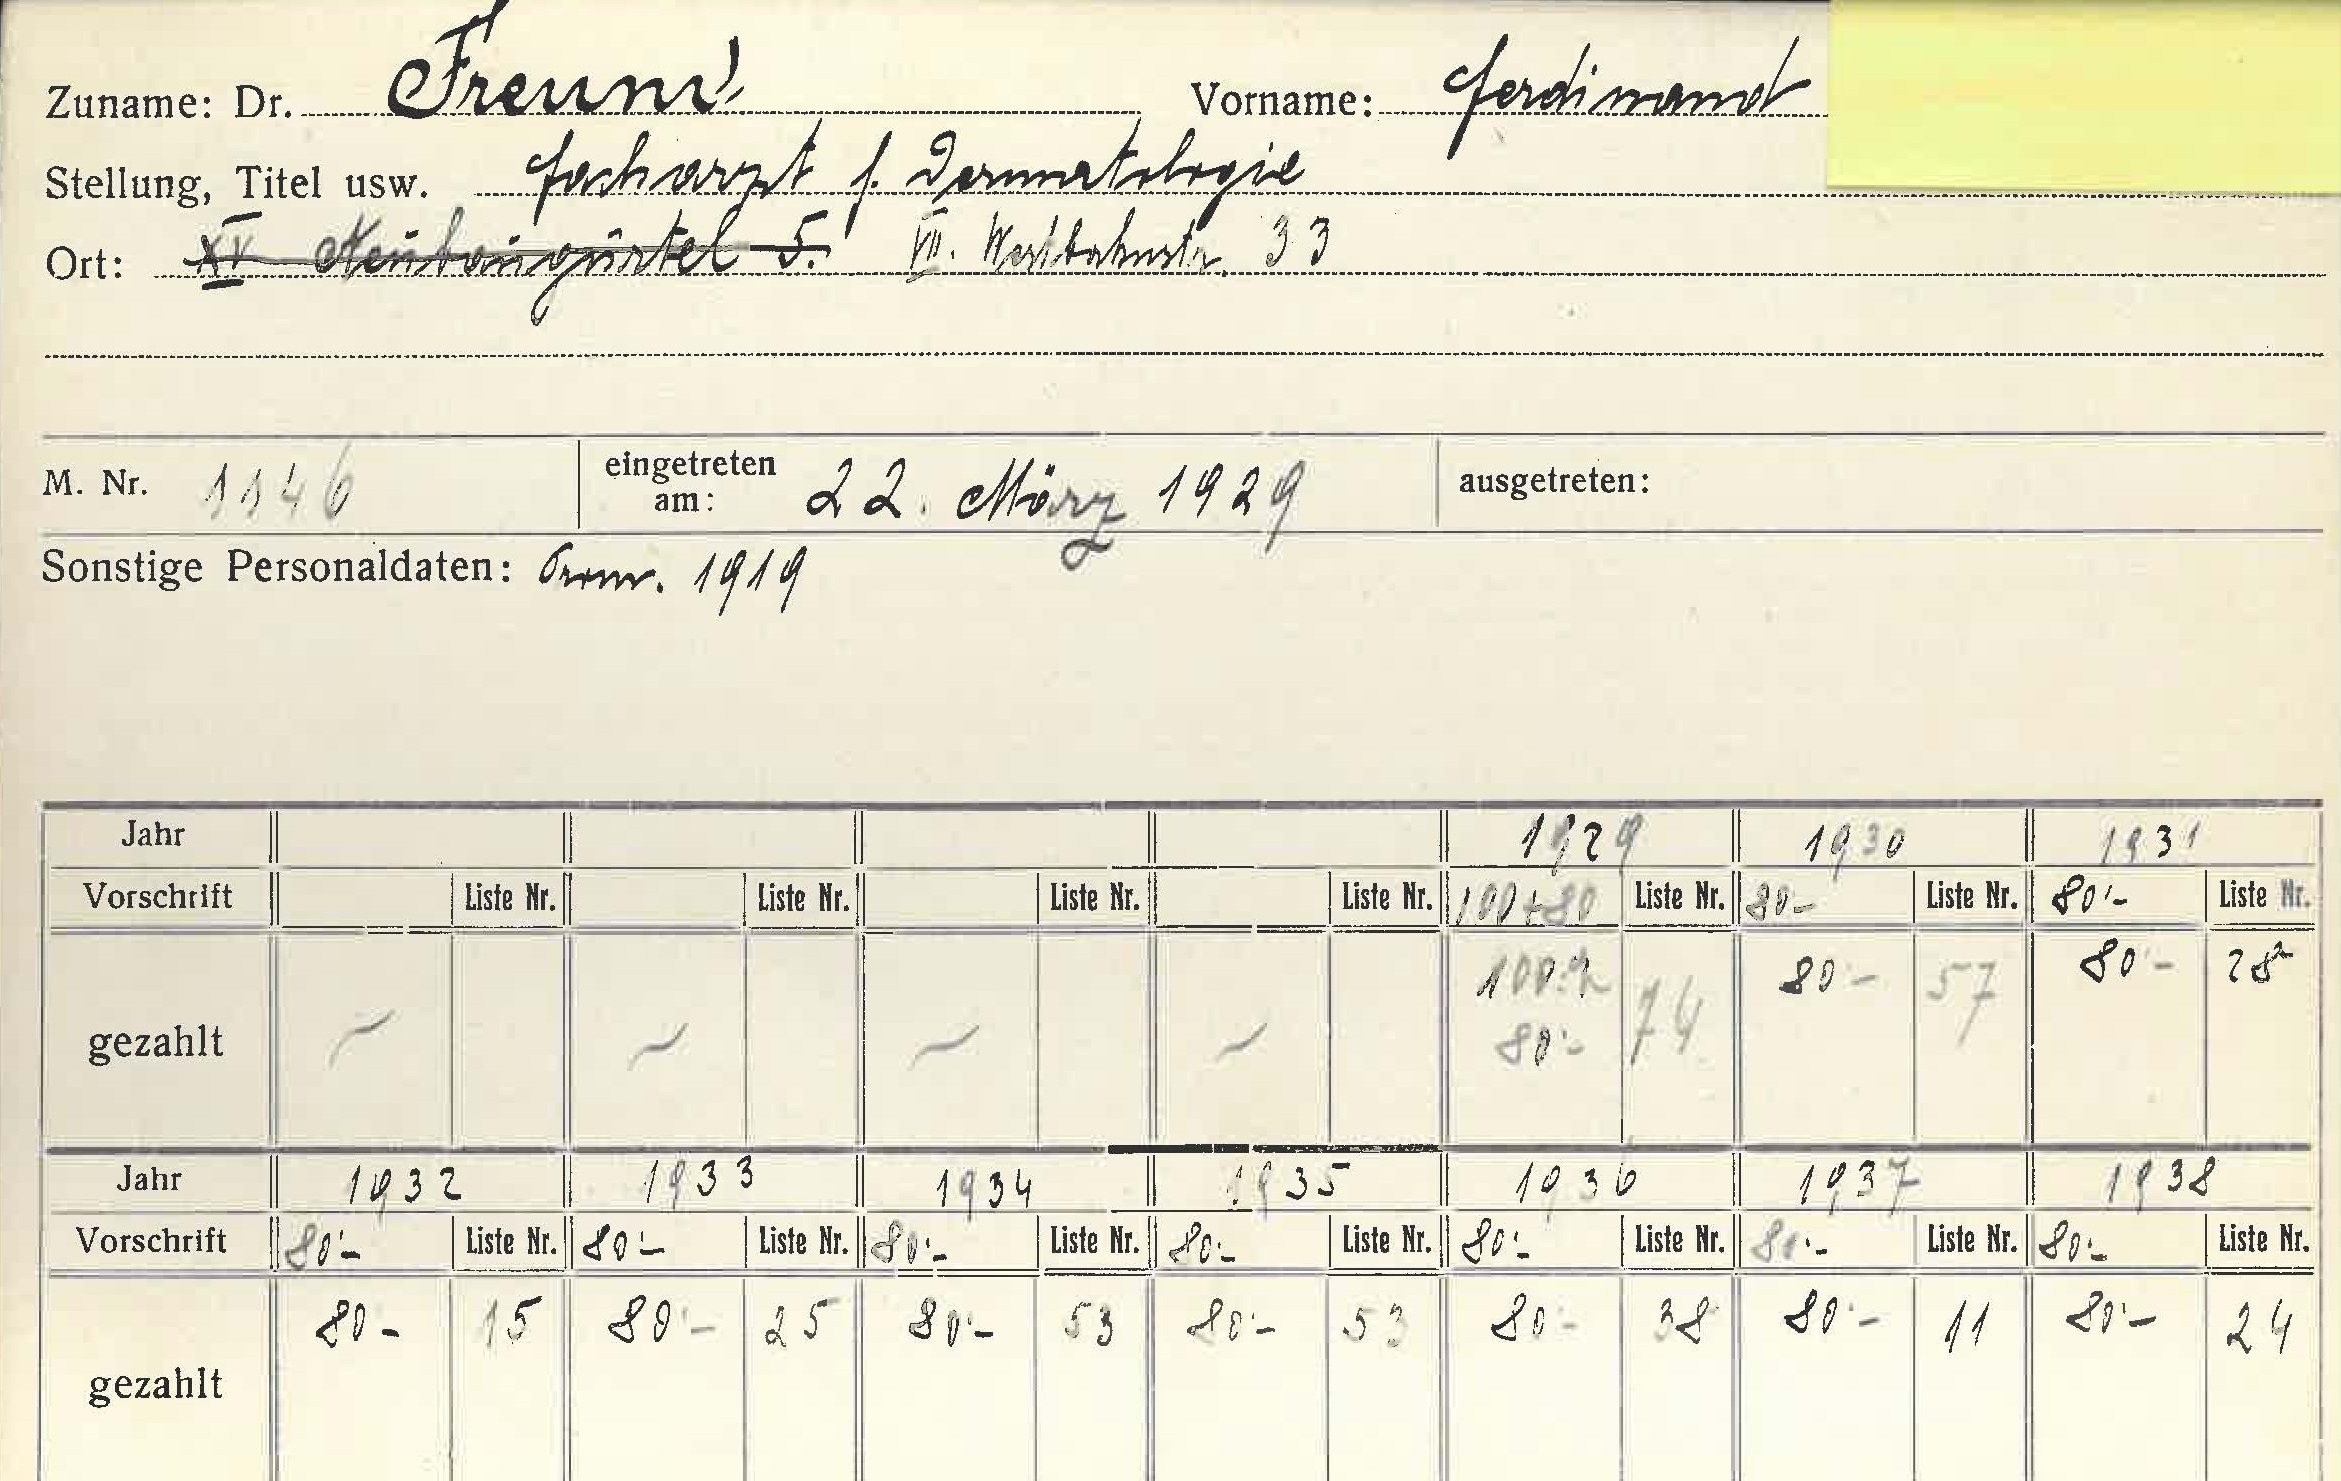 Zuname: Dr. Freund Vorname: Ferdinand
Stellung, Titel usw. Facharzt f. Dermatologie
Ort: XV Neubaugürtel 5. VII. Westbahnstr. 33
M. Nr. 1146 eingetreten am: 22. März 1929 ausgetreten:
Sonstige Personaldaten: Prom. 1919
Jahr 1929 1930 1931
Vorschrift Liste Nr. Liste Nr. Liste Nr. Liste Nr. 100+80 Liste Nr. 80- Liste Nr. 80'- Liste Nr.
gezahlt ~ ~ ~ ~ 100:- 80:- 74 80- 57 80- 28
Jahr 1932 1933 1934 1935 1936 1937 1938
Vorschrift 80'- Liste Nr. 80'- Liste Nr. 80'- Liste Nr. 80'- Liste Nr. 80'- Liste Nr. 80'- Liste Nr. 80'- Liste Nr.
gezahlt 80- 15 80'- 25 80'- 53 80'- 53 80- 38 80'- 11 80'- 24